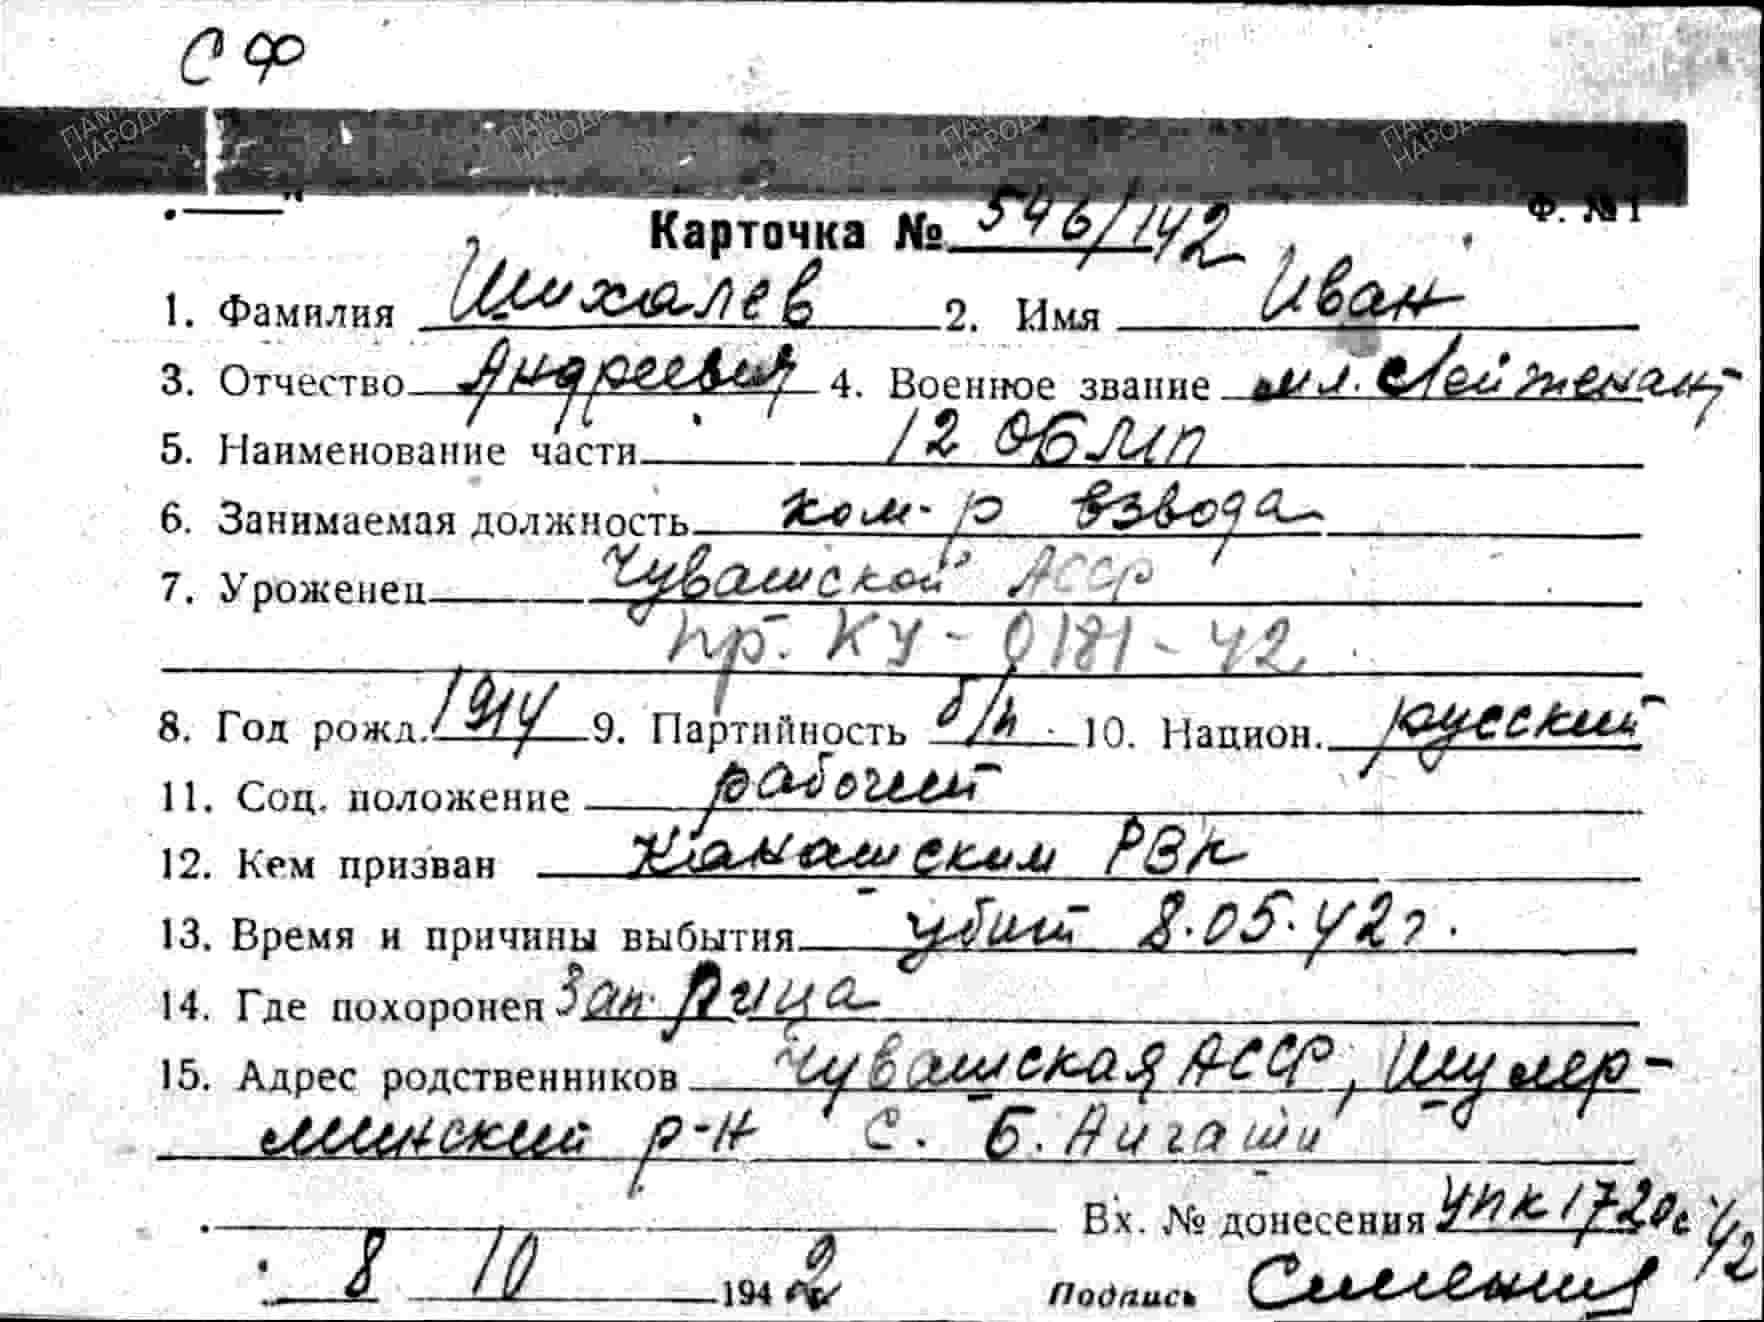 СФ
ПАМЯТЬ НАРОДА ПАМЯТЬ НАРОДА ПАМЯТЬ НАРОДА ПАМЯТЬ НАРОДА
Ф. №1
Карточка № 546/142
1. Фамилия Шихалев 2. Имя Иван
3. Отчество Андреевич 4. Военное звание мл. Лейтенант
5. Наименование части 12 ОБ МП
6. Занимаемая должность ком-р взвода
7. Уроженец Чувашской АССР
пр. КУ-0181-42
8. Год рожд. 1914 9. Партийность б/п 10. Национ. русский
11. Соц. положение рабочий
12. Кем призван Канашским РВК
13. Время и причины выбытия убит 8.05.42 г.
14. Где похоронен Зап. Лица
15. Адрес родственников Чувашская АССР, Шумер-
линский р-н с. Б. Аигаши
Вх. № донесения УПК 1720с 42
8 10 1942 Подпись